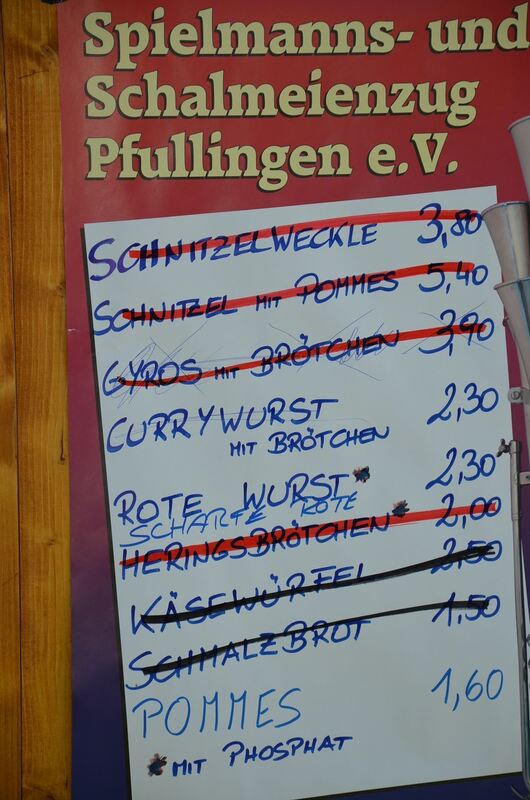 Spielmanns- und
Schalmeienzug
Pfullingen e.V.
SCHNITZELWECKLE 3,80
SCHNITZEL MIT POMMES 5,40
GYROS MIT BRÖTCHEN 3,90
CURRYWURST 2,30
MIT BRÖTCHEN
ROTE WURST* 2,30
SCHARFE ROTE
HERINGSBRÖTCHEN* 2,00
KÄSEWÜRFEL 2,50
SCHMALZBROT 1,50
POMMES 1,60
* MIT PHOSPHAT